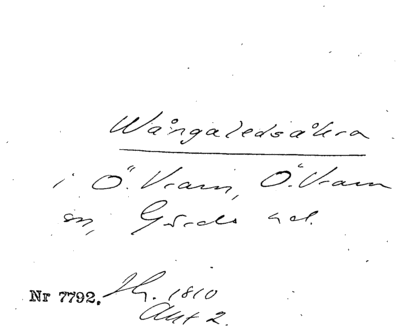 Wångaledsåkra
i Ö. Vram, Ö. Vram
sn, Gärds hd.
Nr 7792. Hy. 1810
Akt 2.